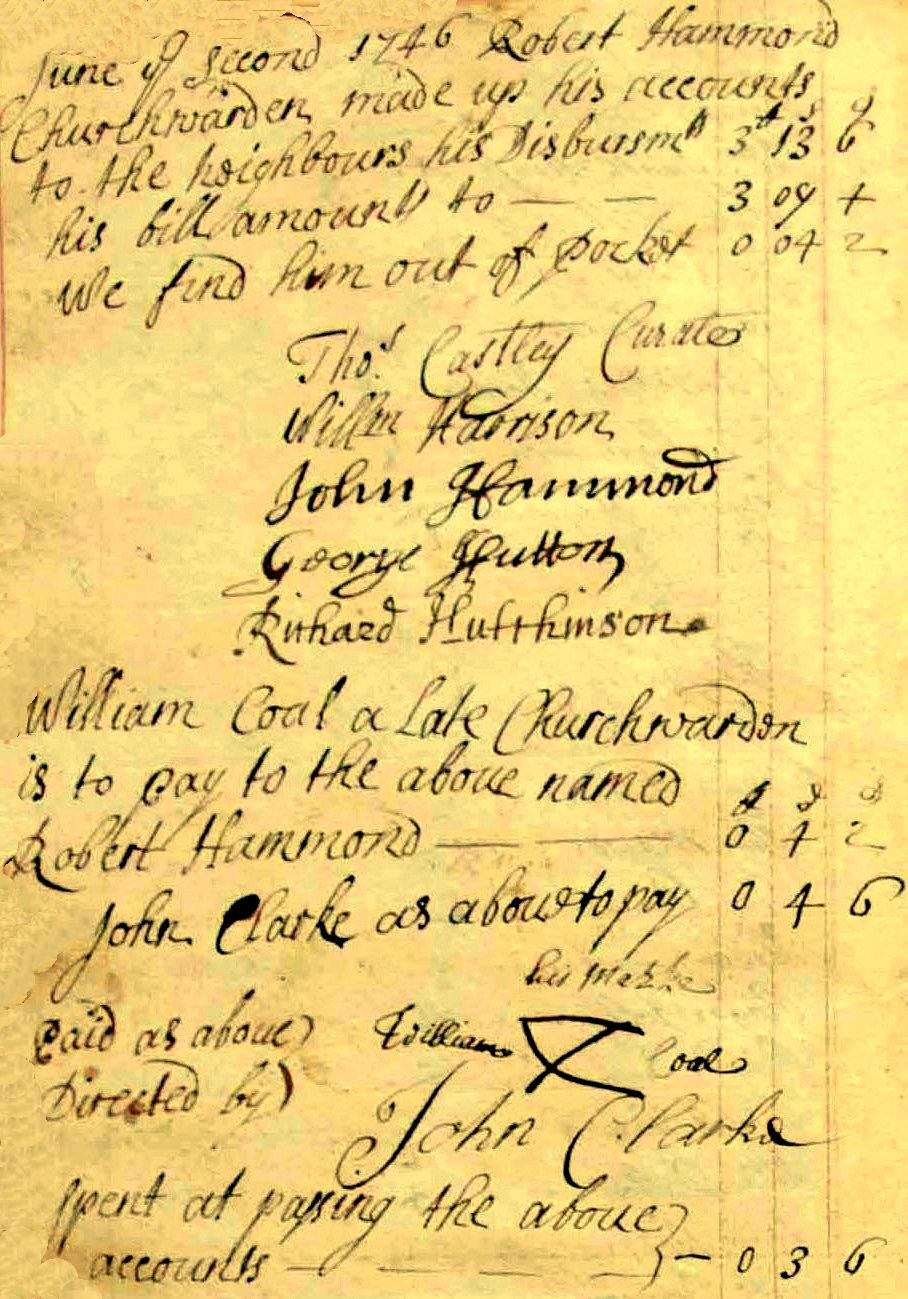 June ye Second 1746 Robert Hammond
Churchwarden made up his accounts
to the neighbours his Disbursmts 3 13 6
his bill amounts to — — 3 09 4
We find him out of pocket 0 04 2
Thos. Castley Curate
Willm Harrison
John Hammond
George Hutton
Richard Hutchinson
William Coal a Late Churchwarden
is to pay to the above named £ s d
Robert Hammond — — 0 4 2
John Clarke as above to pay 0 4 6
his marke
paid as above) William Coal
Directed by)
John Clarke
spent at passing the above }
accounts — — — — } — 0 3 6